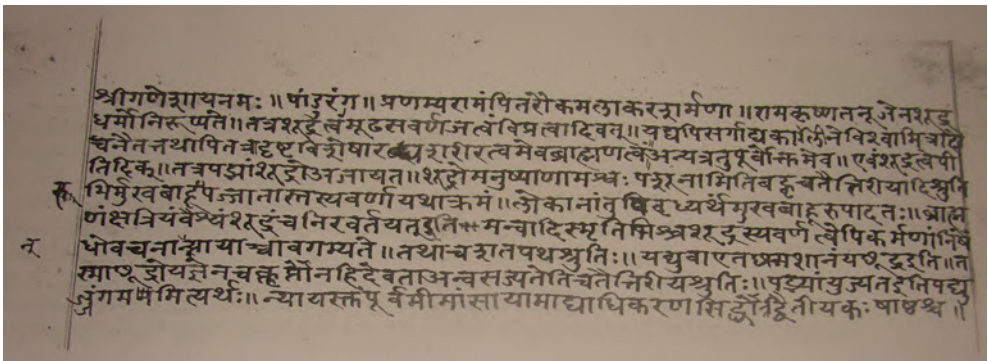 श्रीगणेशायनमः ॥ पांडुरंग ॥ प्रणम्यरामंपितरौकमलाकरशर्मणा ॥ रामकृष्णतनूजेनशूद्र
धर्मोनिरूप्यते ॥ तत्रशूद्रत्वंमूढसवर्णजत्वंविप्रत्वादिवत् ॥ यद्यपिसर्गाद्यकालीनेविश्वामित्रादौ
चनैतत्तथापितत्रादृष्टविशेषारब्धशरीरत्वमेवब्राह्मणत्वंअन्यत्रतुपूर्वोक्तमेव ॥ एवंशूद्रत्वेपी
तिदिक् ॥ तत्रपद्भ्यांशूद्रोअजायत ॥ शूद्रोमनुष्याणामश्वः पशूनामितिबह्वृचतैत्तिरीयादिश्रुति
भिर्मुखबाहूपज्जातास्तस्यवर्णायथाक्रमं ॥ लोकानांतुविवृध्यर्थंमुखबाहूरुपादतः ॥ ब्राह्म
णंक्षत्रियंवैश्यंशूद्रंचनिरवर्तयत्इतिमन्वादिस्मृतिभिश्चशूद्रस्यवर्णत्वेपिकर्मणांनिषे
धोवचनान्न्यायाच्चावगम्यते ॥ तथाचशतपथश्रुतिः ॥ यद्युवाएतछ्मशानंयछूद्रइति ॥ त
स्माछूद्रोयज्ञेनवक्लृप्तोनहिदेवताअन्वसृज्यतेतिचतैत्तिरीयश्रुतिः ॥ पद्भ्यांयुज्यतइतिपद्यु
जंगममित्यर्थः ॥ न्यायस्तक्तपूर्वमीमांसायामाद्याधिकरणसिद्धोद्वितीयकः षाष्ठश्च ॥